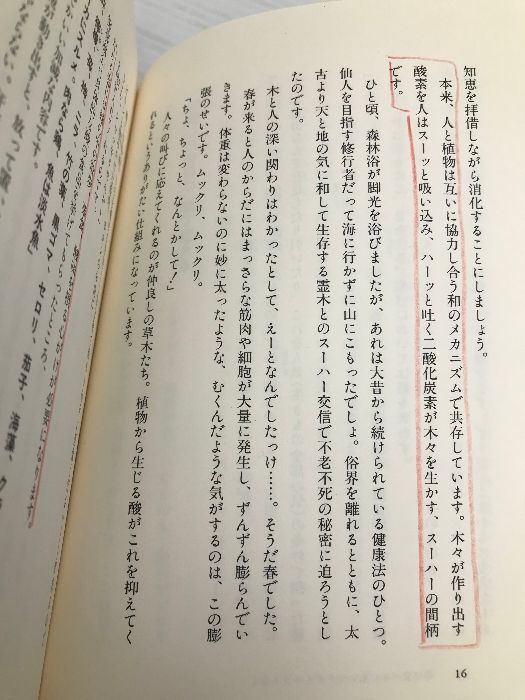 知恵を拝借しながら消化することにしましょう。
本来、人と植物は互いに協力し合う和のメカニズムで共存しています。木々が作り出す
酸素を人はスーッと吸い込み、ハーッと吐く二酸化炭素が木々を生かす、スーハーの間柄
です。
ひと頃、森林浴が脚光を浴びましたが、あれは大昔から続けられている健康法のひとつ。
仙人を目指す修行者だって海に行かずに山にこもったでしょ。俗界を離れるとともに、太
古より天と地の気に和して生存する霊木とのスーハー交信で不老不死の秘密に迫ろうとし
たのです。
木と人の深い関わりはわかったとして、えーとなんでしたっけ……。そうだ春でした。
春が来ると人のからだにはまっさらな筋肉や細胞が大量に発生し、ずんずん膨らんでい
きます。体重は変わらないのに妙に太ったような、むくんだような気がするのは、この膨
張のせいです。ムックリ、ムックリ。
「ちょ、ちょっと、なんとかして！」
人々の叫びに応えてくれるのが仲良しの草木たち。植物から生じる酸がこれを抑えてく
れるというありがたい仕組みになっています。
16
必要になります
挙げてもらったところ、
竹の葉、黒ゴマ、セロリ、茄子、海藻、クラ
魚は淡水魚」